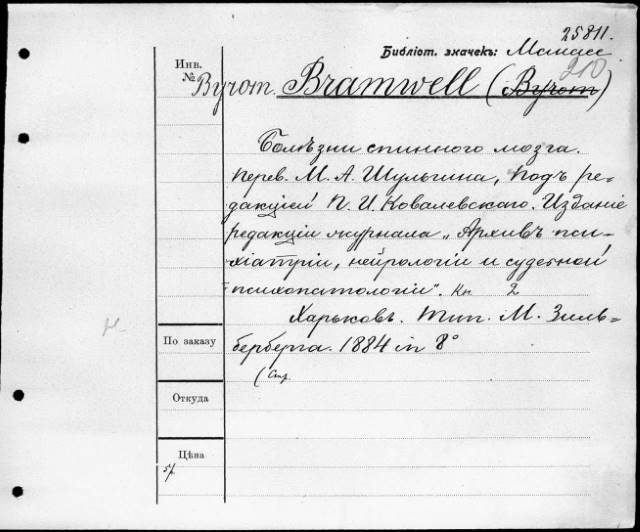 25811.
Библіот. значекъ:
210
Инв.
№
Byrom. Bramwell (Byrom)
Болѣзни спиннаго мозга.
Перев. М. А. Шульгина, подъ ре-
дакціей П. И. Ковалевскаго. Изданіе
редакціи журнала „Архивъ пси-
хіатріи, нейрологіи и судебной
психопатологіи". Кн 2
Харьковъ. Тип. М. Зиль-
По заказу
берберга. 1884 in 8°
(Стр.
Откуда
Цѣна